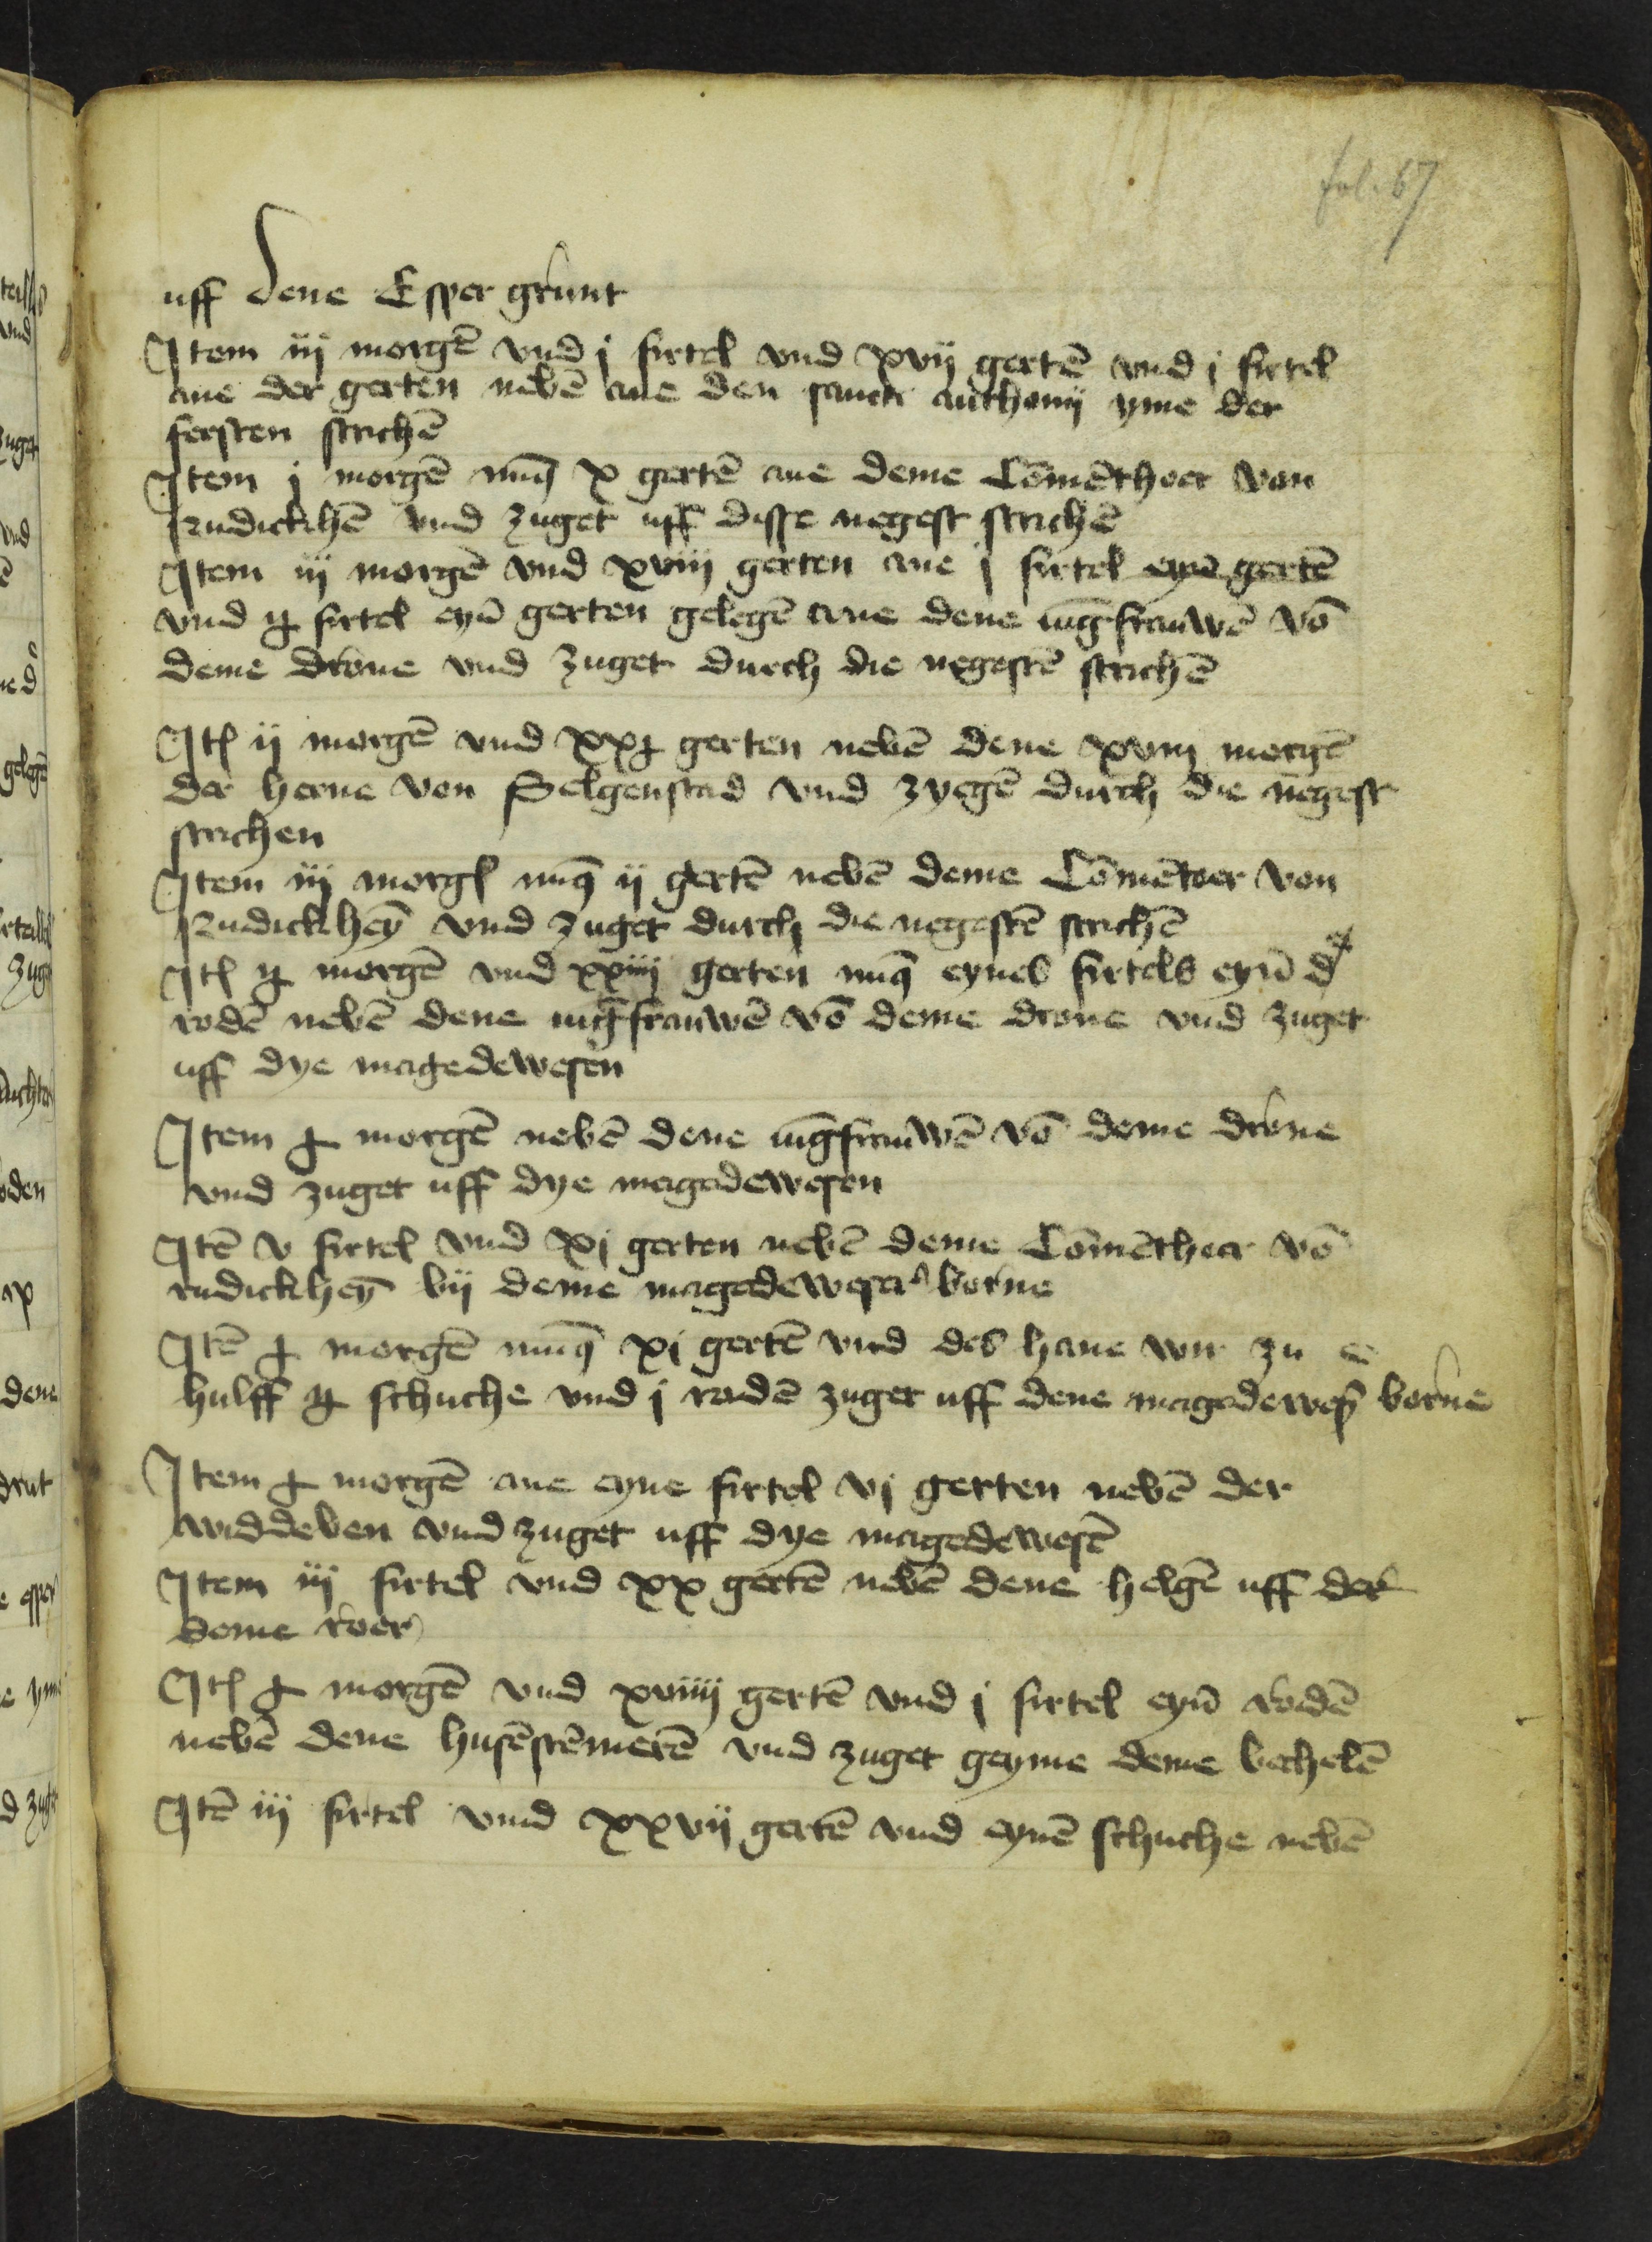 fol. 67
uff dene Esper grunt
Item iij morgē vnd j firtel vnd xvij gertē vnd j firtel
ane der gerten nebē ane den sancti anthonij yme der
fersten strichē
Item j morgē mīq x gertē ane deme Cōmēthoer von
Rudickhē vnd zuget uff disse negest strichē
Item iij morgē vnd xviij gerten ane j firtel eyn gertē
vnd ij firtel eyn̄ gerten gelegē ane dene iūgfrauwē vō
deme drone vnd zuget durch die negestē strichē
Itē ij morgē vnd xx gerten nebē dene xviij morgē
der herne von Selgenstad vnd zyegē durch die negest
strichen
Item iij morgē mīq ij gertē nebē deme Cōmētoer von
Rudickheȳ vnd zuget durch die negestē strichē
Itē morgē vnd xxiiij gerten mīq eynes firtels eyn̄ d
rodē nebē dene iūgfrauwē vō deme drone vnd zuget
uff dye magedewesen
Item morgē nebē dene iūgfrauwē vō deme drone
vnd zuget uff dye magedewesen
Itē v firtel vnd xj gerten nebē deme Cōmēthoer vō
rudickheȳ bij deme magedeweser borne
Itē morgē mīq xj gertē vnd des hane wir zu
hulff schuche vnd j rodē zuget uff dene magedewes̄ borne
Item morgē ane eyne firtel vj gerten nebē der
widdeben vnd zuget uff dye magedewesē
Item iij firtel vnd xx gertē nebē dene helgē uff der
deme roer
Itē morgē vnd xviiij gertē vnd j firtel eyn̄ rodē
nebē dene husēstēmerē vnd zuget geyme deme bechelē
Itē iij firtel vnd xxvij gertē vnd eynē schuche nebē